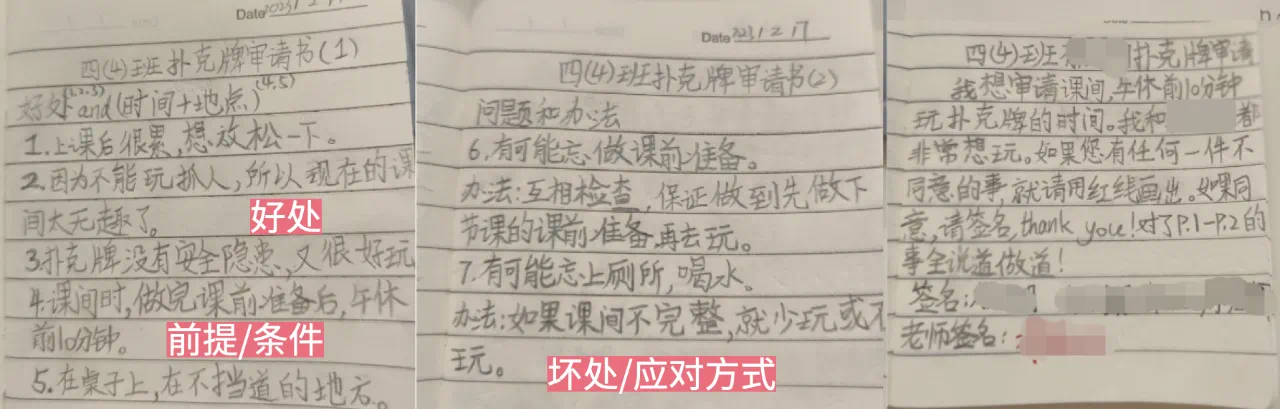 Date 2023 1 2 17
四(4)班扑克牌审请书(1)
好处(1,2,3)and(时间+地点)(4,5)
1.上课后很累,想放松一下。
2.因为不能玩抓人,所以现在的课
间太无趣了。
好处
3.扑克牌没有安全隐患,又很好玩
4.课间时,做完课前准备后,午休
前10分钟。
前提/条件
5.在桌子上,在不挡道的地方。
Date 2023 1 2 17
四(4)班扑克牌审请书(2)
问题和办法
6.有可能忘做课前准备。
办法:互相检查,保证做到先做下
节课的课前准备,再去玩。
7.有可能忘上厕所,喝水。
办法:如果课间不完整,就少玩或不
玩。
坏处/应对方式
四(4)班 扑克牌审请
我想审请课间,午休前10分钟
玩扑克牌的时间。我和 都
非常想玩。如果您有任何一件不
同意的事,就请用红线画出。如果同
意,请签名,thank you!对了P.1-P.2的
事全说道做道!
签名:
老师签名: